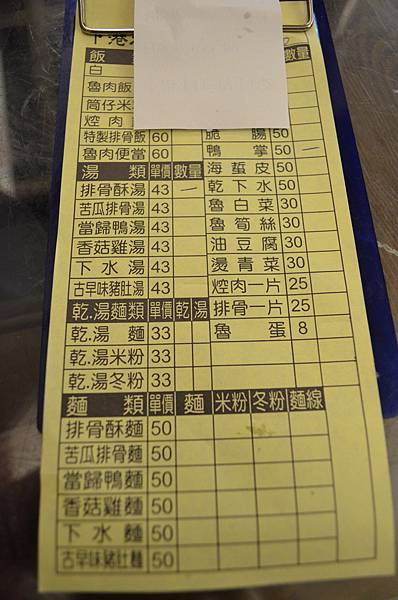 飯
數量
白
魯肉飯
筒仔米
焢肉
特製排骨飯 60 脆腸 50
魯肉便當 60 鴨掌 50 一
湯類 單價 數量 海蜇皮 50
排骨酥湯 43 一 乾下水 50
苦瓜排骨湯 43 魯白菜 30
當歸鴨湯 43 魯筍絲 30
香菇雞湯 43 油豆腐 30
下水湯 43 燙青菜 30
古早味豬肚湯 43 焢肉一片 25
乾.湯麵類 單價 乾 湯 排骨一片 25
乾.湯麵 33 魯蛋 8
乾.湯米粉 33
乾.湯冬粉 33
麵類 單價 麵 米粉 冬粉 麵線
排骨酥麵 50
苦瓜排骨麵 50
當歸鴨麵 50
香菇雞麵 50
下水麵 50
古早味豬肚麵 50